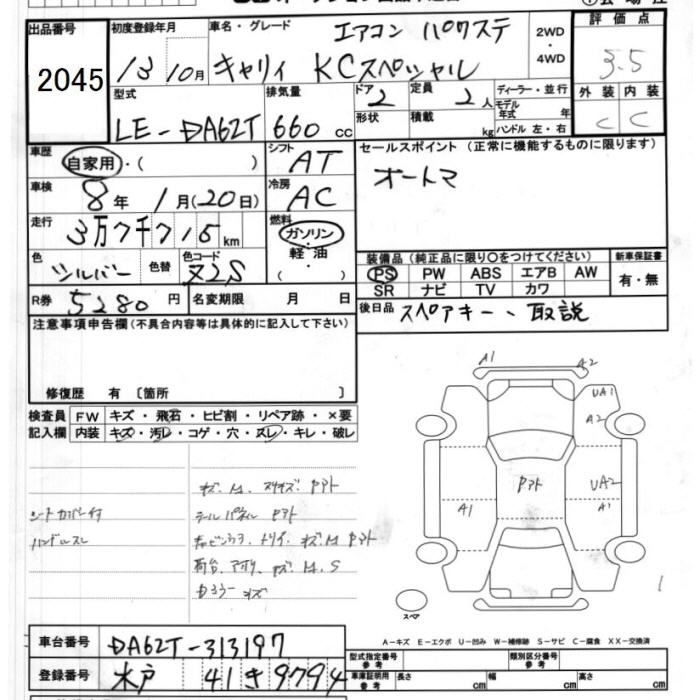 出品番号 初度登録年月 車名・グレード エアコン パワステ 2WD・4WD 評価点
2045 13 10月 キャリィ KCスペシャル 3.5
型式 排気量 ドア 2 定員 2人 ディーラー・並行 外装 内装
LE-DA62T 660 cc 形状 積載 kg モデル年式 年 ハンドル 左・右 C C
車歴 自家用・( ) シフト AT セールスポイント (正常に機能するものに限ります)
車検 8年 1月(20日) 冷房 AC オートマ
走行 3万7千715km 燃料 ガソリン・軽油
色 シルバー 色替 色コード Z2S 装備品(純正品に限り○をつけてください) 新車保証書
PS PW ABS エアB AW 有・無
SR ナビ TV カワ
R券 5280円 名変期限 月 日 後日品 スペアキー、取説
注意事項申告欄(不具合内容等は具体的に記入して下さい)
修復歴 有 〔箇所 〕
検査員 FW キズ・飛石・ヒビ割・リペア跡・×要
記入欄 内装 キズ・汚レ・コゲ・穴・スレ・キレ・破レ
A1 A2
UA1
A2
Pアト UA2
A1 A1
シートカバー付
ハンドルスレ
テールパネル Pアト
スペア
A-キズ E-エクボ U-凹み W-補修跡 S-サビ C-腐食 XX-交換済
車台番号 DA62T-313197
型式指定番号 参考 類別区分番号 参考
登録番号 水戸 41 き 9794
車庫証明用 参考 長さ cm 幅 cm 高さ cm